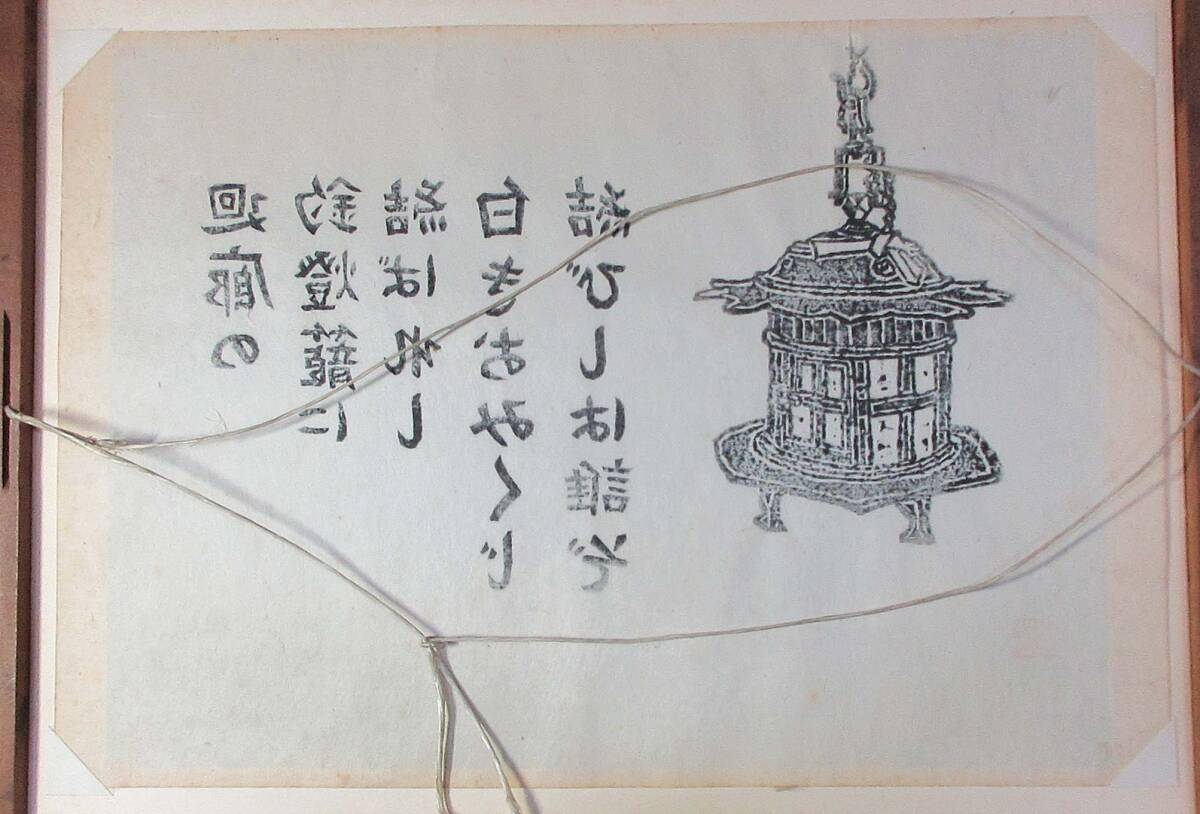 廻廊の
釣燈籠に
結ばれし
白きおみくじ
結びしは誰ぞ